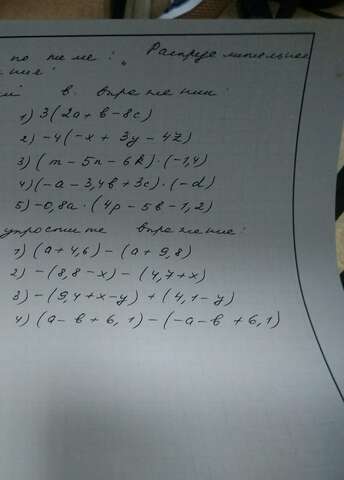 по теме: „ Распределительное
ение"
в выражении:
1) 3(2a + b - 8c)
2) -4(-x + 3y - 4z)
3) (m - 5n - 6k) · (-1,4)
4) (-a - 3,4b + 3c) · (-d)
5) -0,8a · (4p - 5b - 1,2)
упростите выражение:
1) (a + 4,6) - (a + 9,8)
2) -(8,8 - x) - (4,7 + x)
3) -(9,4 + x - y) + (4,1 - y)
4) (a - b + 6,1) - (-a - b + 6,1)